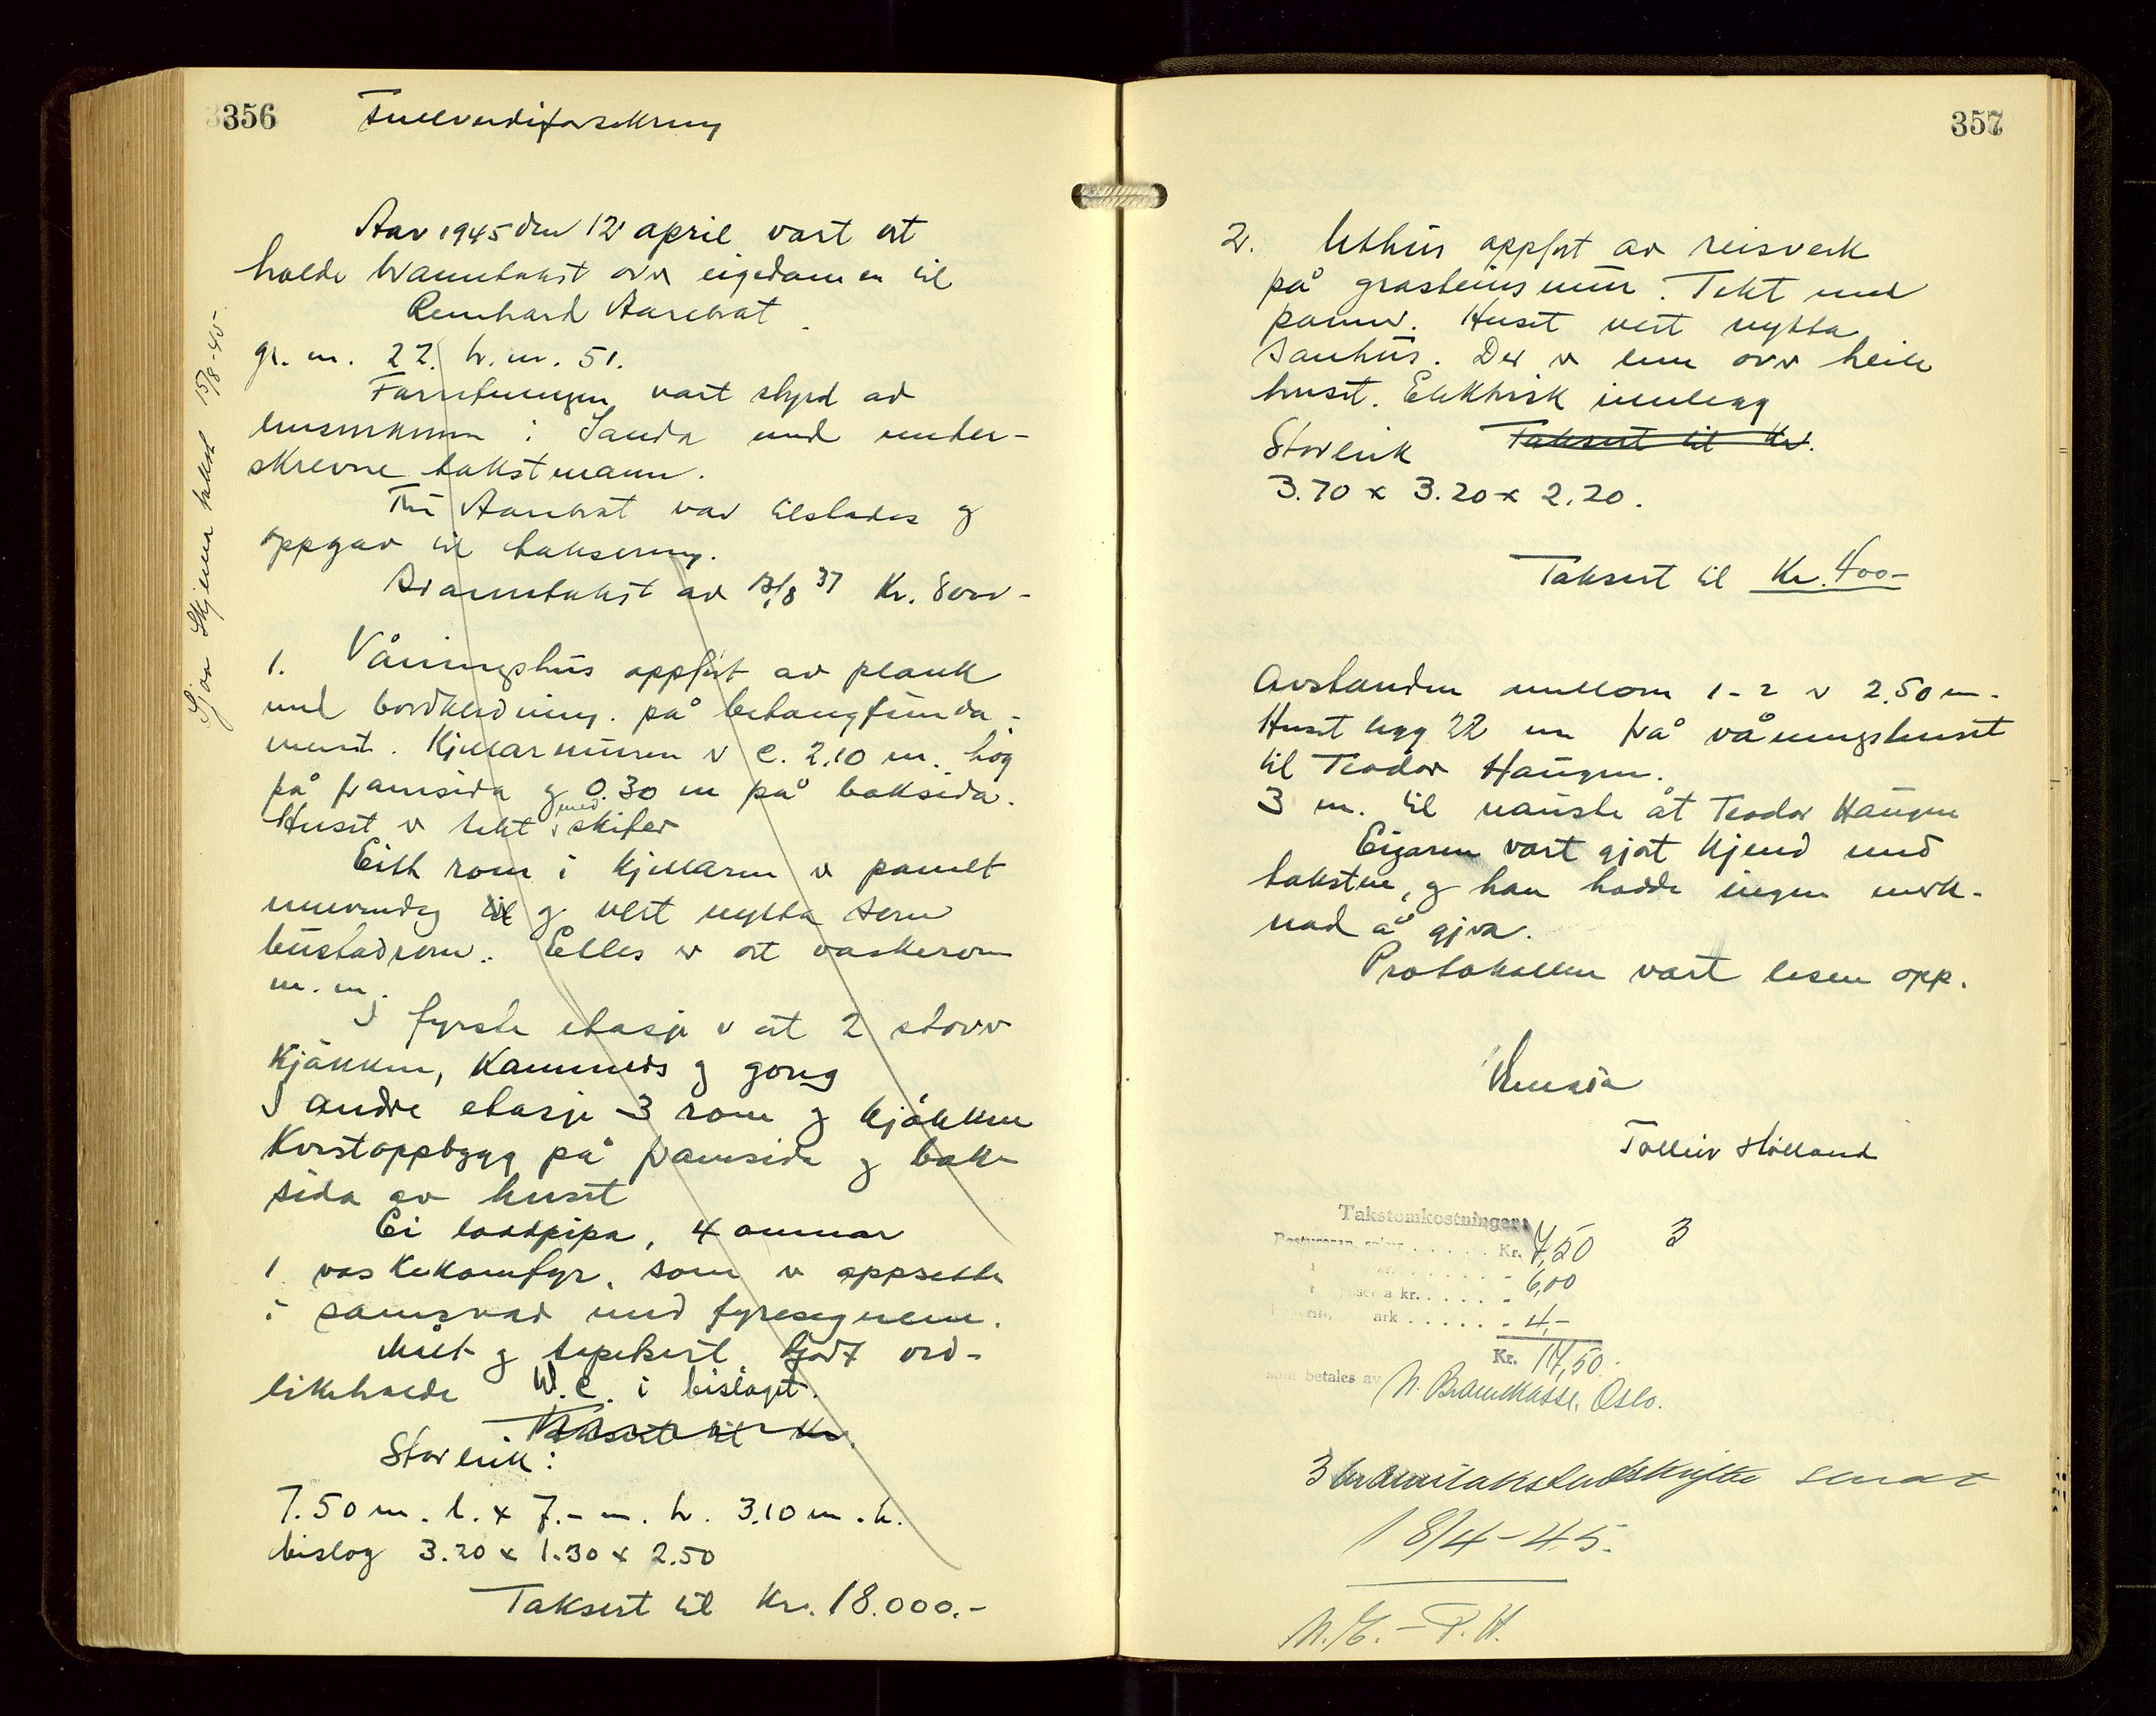 356
Fullverdiforsikring
Aar 1945 den 12 april vart ert
halde branntakst over eigedomen til
Reinhard Aarekrat
gr. nr. 22. br. nr. 51.
Forretningen vart styrd av
lensmannen i Sauda med under-
skrevne takstmann.
Fru Aartrat var tilstades og
oppgav til taksering.
Branntakst av 13/8 37 Kr. 8000-
1. Våningshus oppført av plank
med bordkledning. på betongfunda-
ment. Kjellarmuren er c. 2.10 m. høg
på framsida og 0.30 m på baksida.
Huset er tekt med skifer
Eitt rom i kjellaren er panelt
innvendig og vert nytta som
bustadrom. Elles er det vaskerom
m. m.
I fyrste etasje er det 2 stover
Kjøkken, Kammers og gong
I andre etasje 3 rom og kjøkken
Kvistoppbygg på framsida og bak-
sida av huset
Ei loddpipa, 4 omnar
1 vaskekomfyr, som er oppsette
i samsvar med fyresegnene.
Målt og tapetsert. Godt ved-
likehalde W.C. i bislaget.
Taksert til Kr.
Storleik:
7.50 m. l. x 7.- m. br. 3.10 m. h.
bislag 3.20 x 1.30 x 2.50
Taksert til Kr. 18.000.-
Gjær Skjema takst 15/8-45.
357
2. Uthus oppført av reisverk
på grasteinsmur. Tekt med
panner. Huset vert nytta
sauhus. Det er lem over heile
huset. Elektrisk innlegg
Storleik Taksert til Kr.
3.70 x 3.20 x 2.20.
Taksert til Kr. 400-
Avstanden millom 1-2 er 2.50 m.
Huset ligg 22 m frå våningshuset
til Teodor Haugen.
3 m. til nauste åt Teodor Haugen
Eigaren vart gjort kjend med
taksten, og han hadde ingen merk-
nad å gjera.
Protokollen vart lesen opp.
Tolleiv Hølland
Takstomkostninger:
Kr. 7,50 3
6,00
a kr. 
ark 4,-
Kr. 17,50.
som betales av N. Brannkasse, Oslo.
3 branntakstutskrifter sendt
18/4-45.
N.E. - T.H.